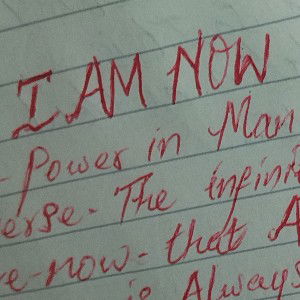 I AM NOW
- Power in Man
erse. The infini
e-now- that A
is Always